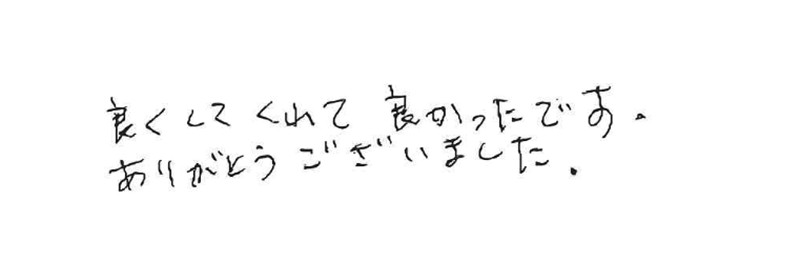 良くしてくれて良かったです。
ありがとうございました。